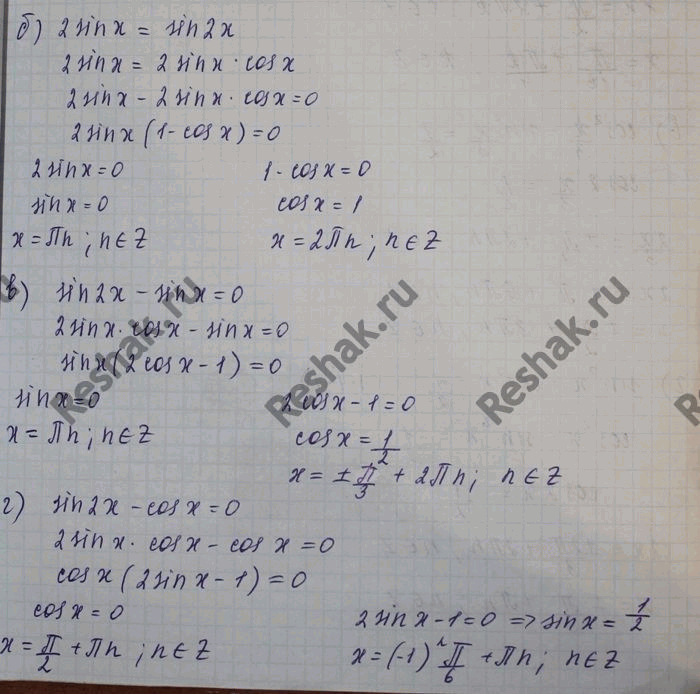 б) 2sinx = sin2x
2sinx = 2sinx · cosx
2sinx - 2sinx · cosx = 0
2sinx (1 - cosx) = 0
2sinx = 0 1 - cosx = 0
sinx = 0 cosx = 1
x = Πn ; n ∈ Z x = 2Πn ; n ∈ Z
в) sin2x - sinx = 0
2sinx · cosx - sinx = 0
sinx (2cosx - 1) = 0
sinx = 0 2cosx - 1 = 0
x = Πn ; n ∈ Z cosx = 1/2
x = ± Π/3 + 2Πn ; n ∈ Z
г) sin2x - cosx = 0
2sinx · cosx - cosx = 0
cosx (2sinx - 1) = 0
cosx = 0 2sinx - 1 = 0 => sinx = 1/2
x = Π/2 + Πn ; n ∈ Z x = (-1)ⁿ Π/6 + Πn ; n ∈ Z
Reshak.ru
Reshak.ru
Reshak.ru